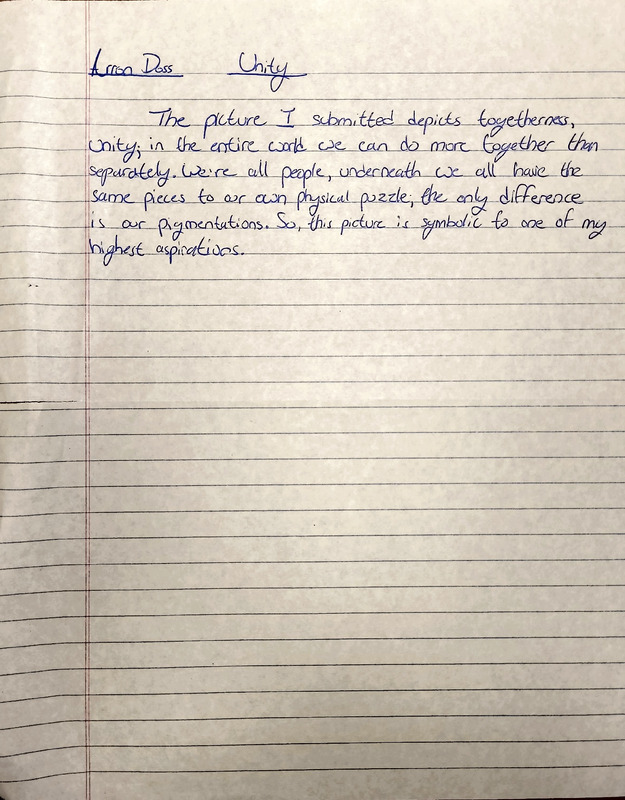 Arron Doss Unity
The picture I submitted depicts togetherness,
Unity; in the entire world we can do more together than
separately. We're all people, underneath we all have the
same pieces to our own physical puzzle; the only difference
is our pigmentations. So, this picture is symbolic to one of my
highest aspirations.